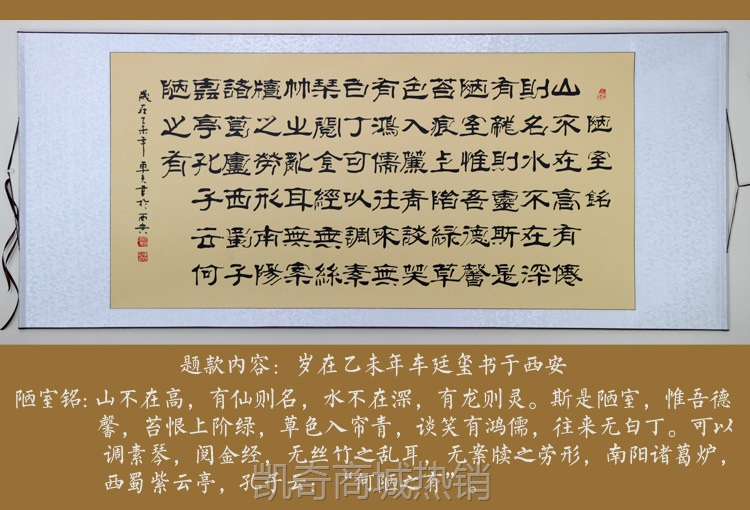 陋室銘
山不在高有僊
則名水不在深
有龍則靈斯是
陋室惟吾德馨
苔痕上階綠草
色入簾青談笑
有鴻儒往來無
白丁可以調素
琴閱金經無絲
竹之亂耳無案
牘之勞形南陽
諸葛廬西蜀子
雲亭孔子云何
陋之有
歲在乙未年車書於西安
题款内容：岁在乙未年车廷玺书于西安
陋室铭：山不在高，有仙则名，水不在深，有龙则灵。斯是陋室，惟吾德
馨，苔恨上阶绿，草色入帘青，谈笑有鸿儒，往来无白丁。可以
调素琴，阅金经，无丝竹之乱耳，无案牍之劳形，南阳诸葛炉，
西蜀紫云亭，孔子云：“何陋之有”。
凯奇商城热销